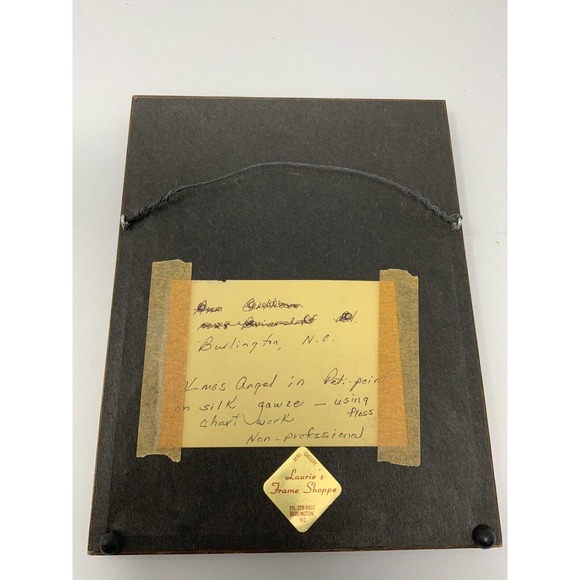 Burlington, N.C.
X-mas Angel in Peti-point
on silk gauze — using
chart work floss
Non-profssional
Laurie's
Frame Shoppe
BURLINGTON,
N.C.